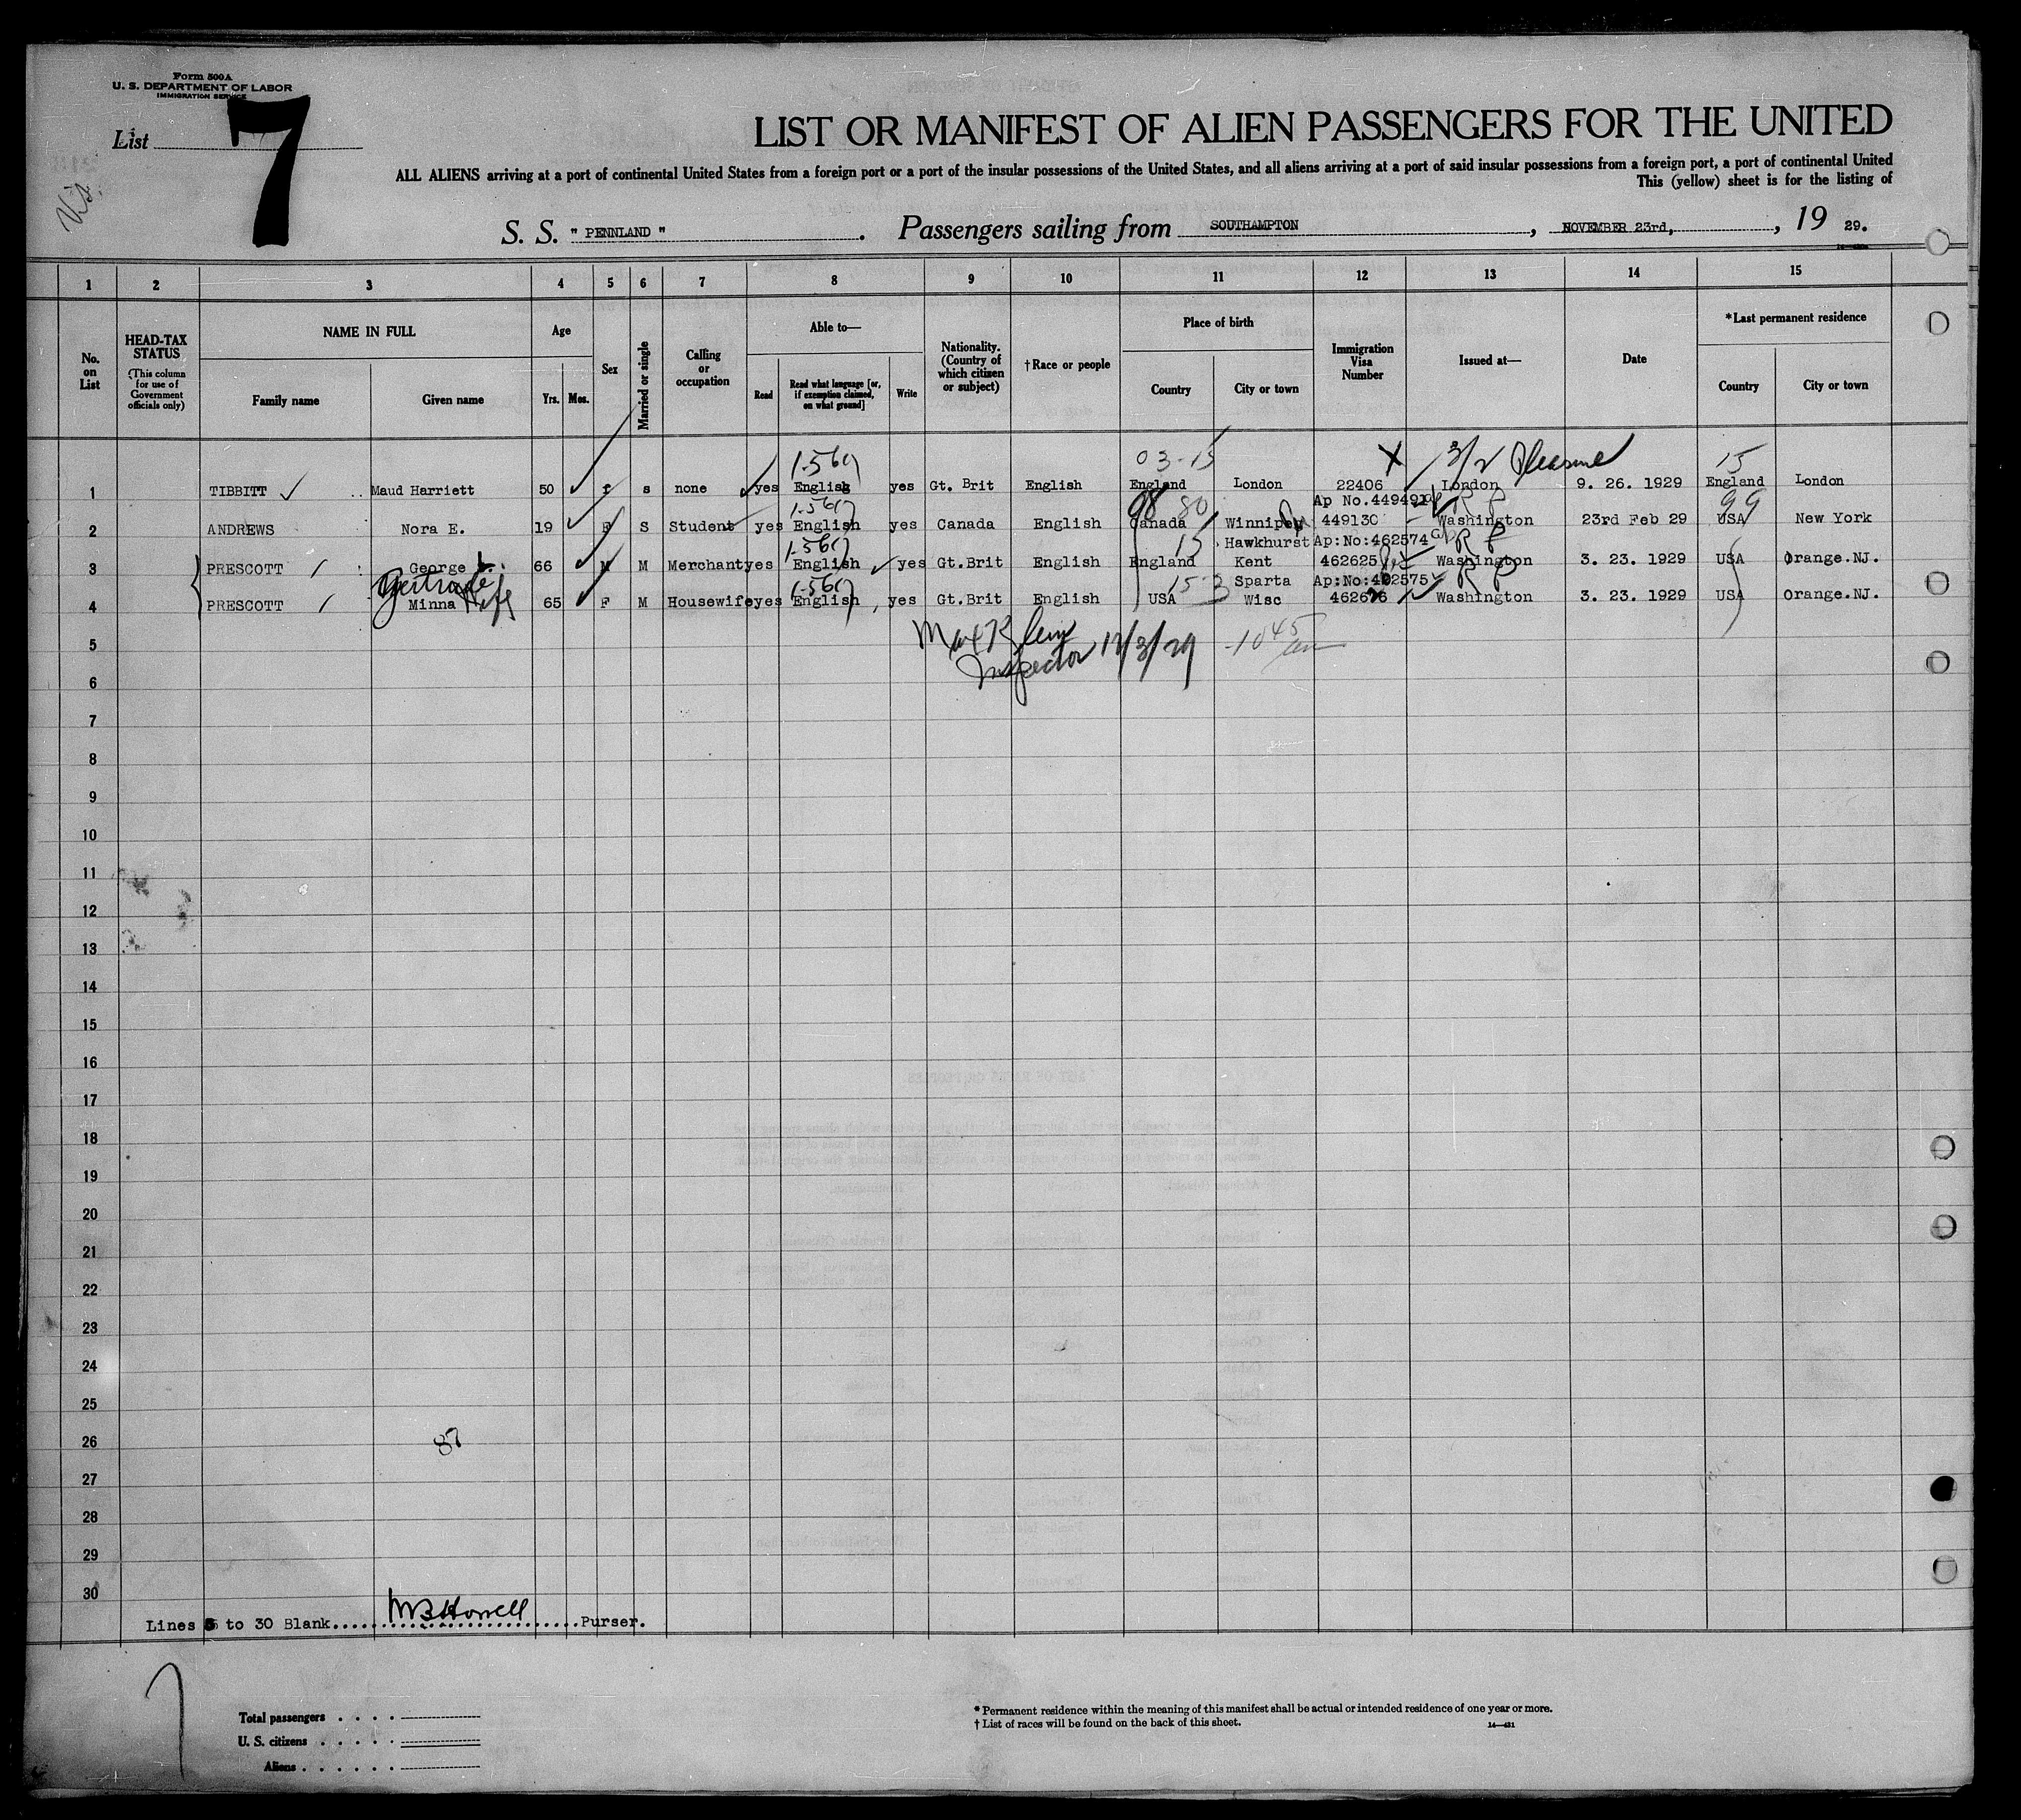 Form 500A
U. S. DEPARTMENT OF LABOR
IMMIGRATION SERVICE
List 7
LIST OR MANIFEST OF ALIEN PASSENGERS FOR THE UNITED
ALL ALIENS arriving at a port of continental United States from a foreign port or a port of the insular possessions of the United States, and all aliens arriving at a port of said insular possessions from a foreign port, a port of continental United
This (yellow) sheet is for the listing of
S. S. " PENNLAND ". Passengers sailing from SOUTHAMPTON, NOVEMBER 23rd, , 19 29.
1 2 3 4 5 6 7 8 9 10 11 12 13 14 15
No. on List
HEAD-TAX STATUS
(This column for use of Government officials only)
NAME IN FULL
Family name Given name
Age
Yrs. Mos.
Sex
Married or single
Calling or occupation
Able to—
Read
Read what language [or, if exemption claimed, on what ground]
Write
Nationality. (Country of which citizen or subject)
†Race or people
Place of birth
Country City or town
Immigration Visa Number
Issued at—
Date
*Last permanent residence
Country City or town
03-15 X 3/2 Pleasure 15
1 TIBBITT Maud Harriett 50 f s none yes English yes Gt. Brit English England London 22406 London 9. 26. 1929 England London
98 80 Ap No.449491 R P 99
2 ANDREWS Nora E. 19 F S Student yes English yes Canada English Canada Winnipeg 449130 Washington 23rd Feb 29 USA New York
15 Hawkhurst Ap:No:462574 R P
3 PRESCOTT George L. 66 M M Merchant yes English yes Gt.Brit English England Kent 462625 Washington 3. 23. 1929 USA Orange.NJ.
Gertrude 15-3 Sparta Ap:No:462575 R P
4 PRESCOTT Minna Wife 65 F M Housewife yes English yes Gt.Brit English USA Wisc 462626 Washington 3. 23. 1929 USA Orange.NJ.
5 Max Klein 10 45 am
Inspector 12/3/29
6
7
8
9
10
11
12
13
14
15
16
17
18
19
20
21
22
23
24
25
26 87
27
28
29
30
Lines 5 to 30 Blank.... Purser.
Total passengers . . . .
U. S. citizens . . . . .
Aliens . . . . . .
* Permanent residence within the meaning of this manifest shall be actual or intended residence of one year or more.
† List of races will be found on the back of this sheet.
14—431